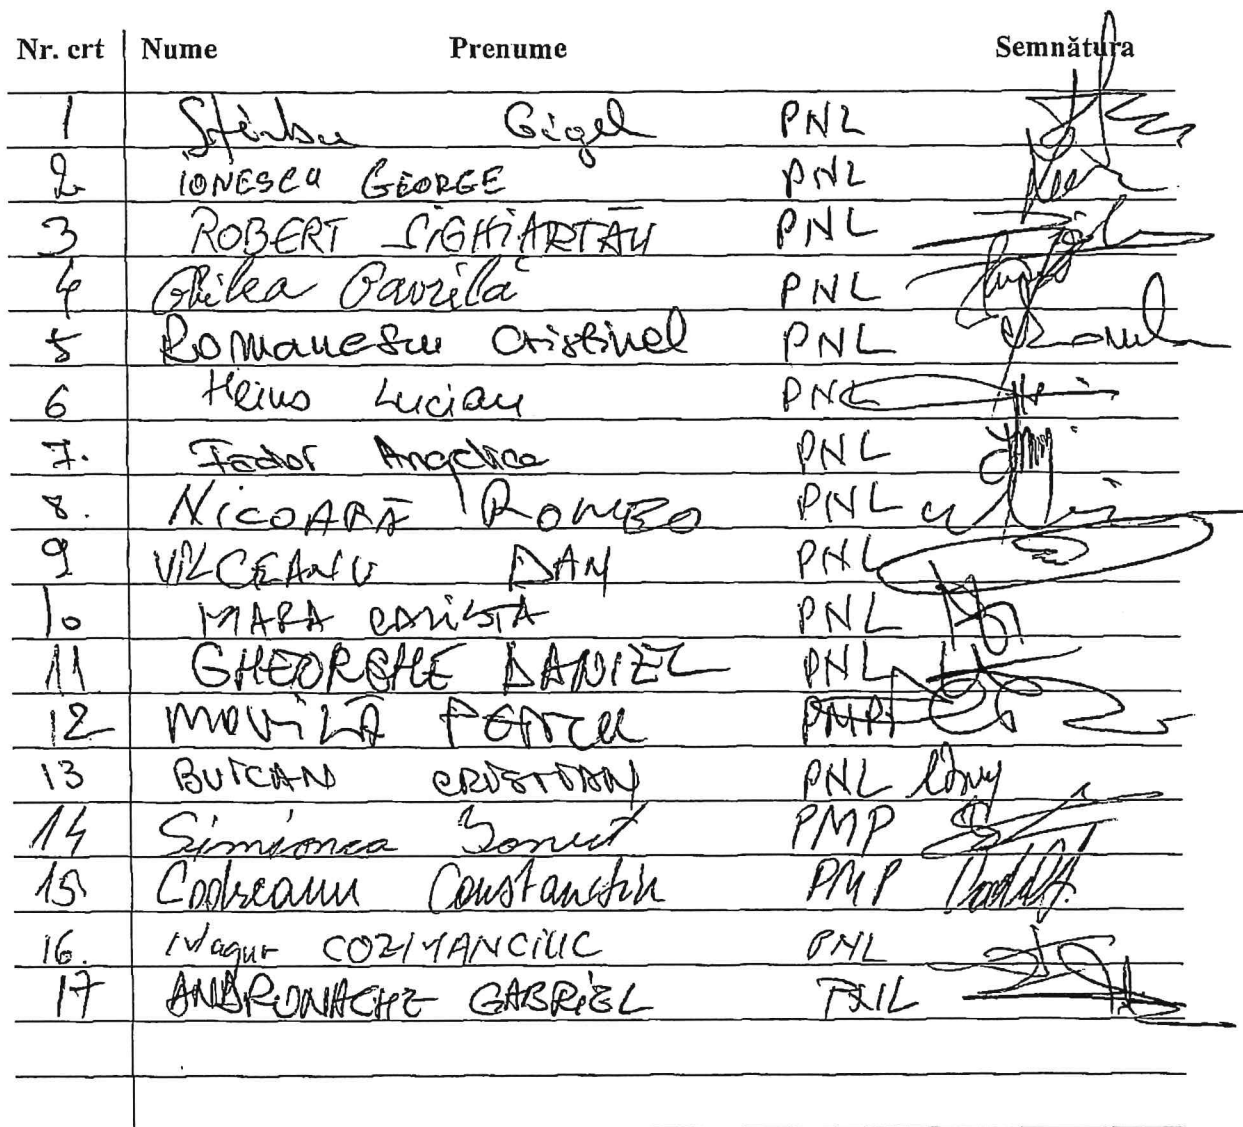 Nr. crt Nume Prenume Semnătura
1 Știrbu Gigel PNL
2 IONESCU GEORGE PNL
3 ROBERT SIGHIARTĂU PNL
4 Ghilea Gavrilă PNL
5 Romanescu Cristinel PNL
6 Heius Lucian PNL
7. Fador Angelica PNL
8. NICOARĂ ROMEO PNL
9 VÎLCEANU DAN PNL
10 MARA PNL
11 GHEORGHE DANIEL PNL
12 MOVILĂ PETRU PMP
13 BUICAN CRISTIAN PNL
14 Simionca Ionuț PMP
15 Codreanu Constantin PMP
16. COZMANCIUC PNL
17 ANDRONACHE GABRIEL PNL